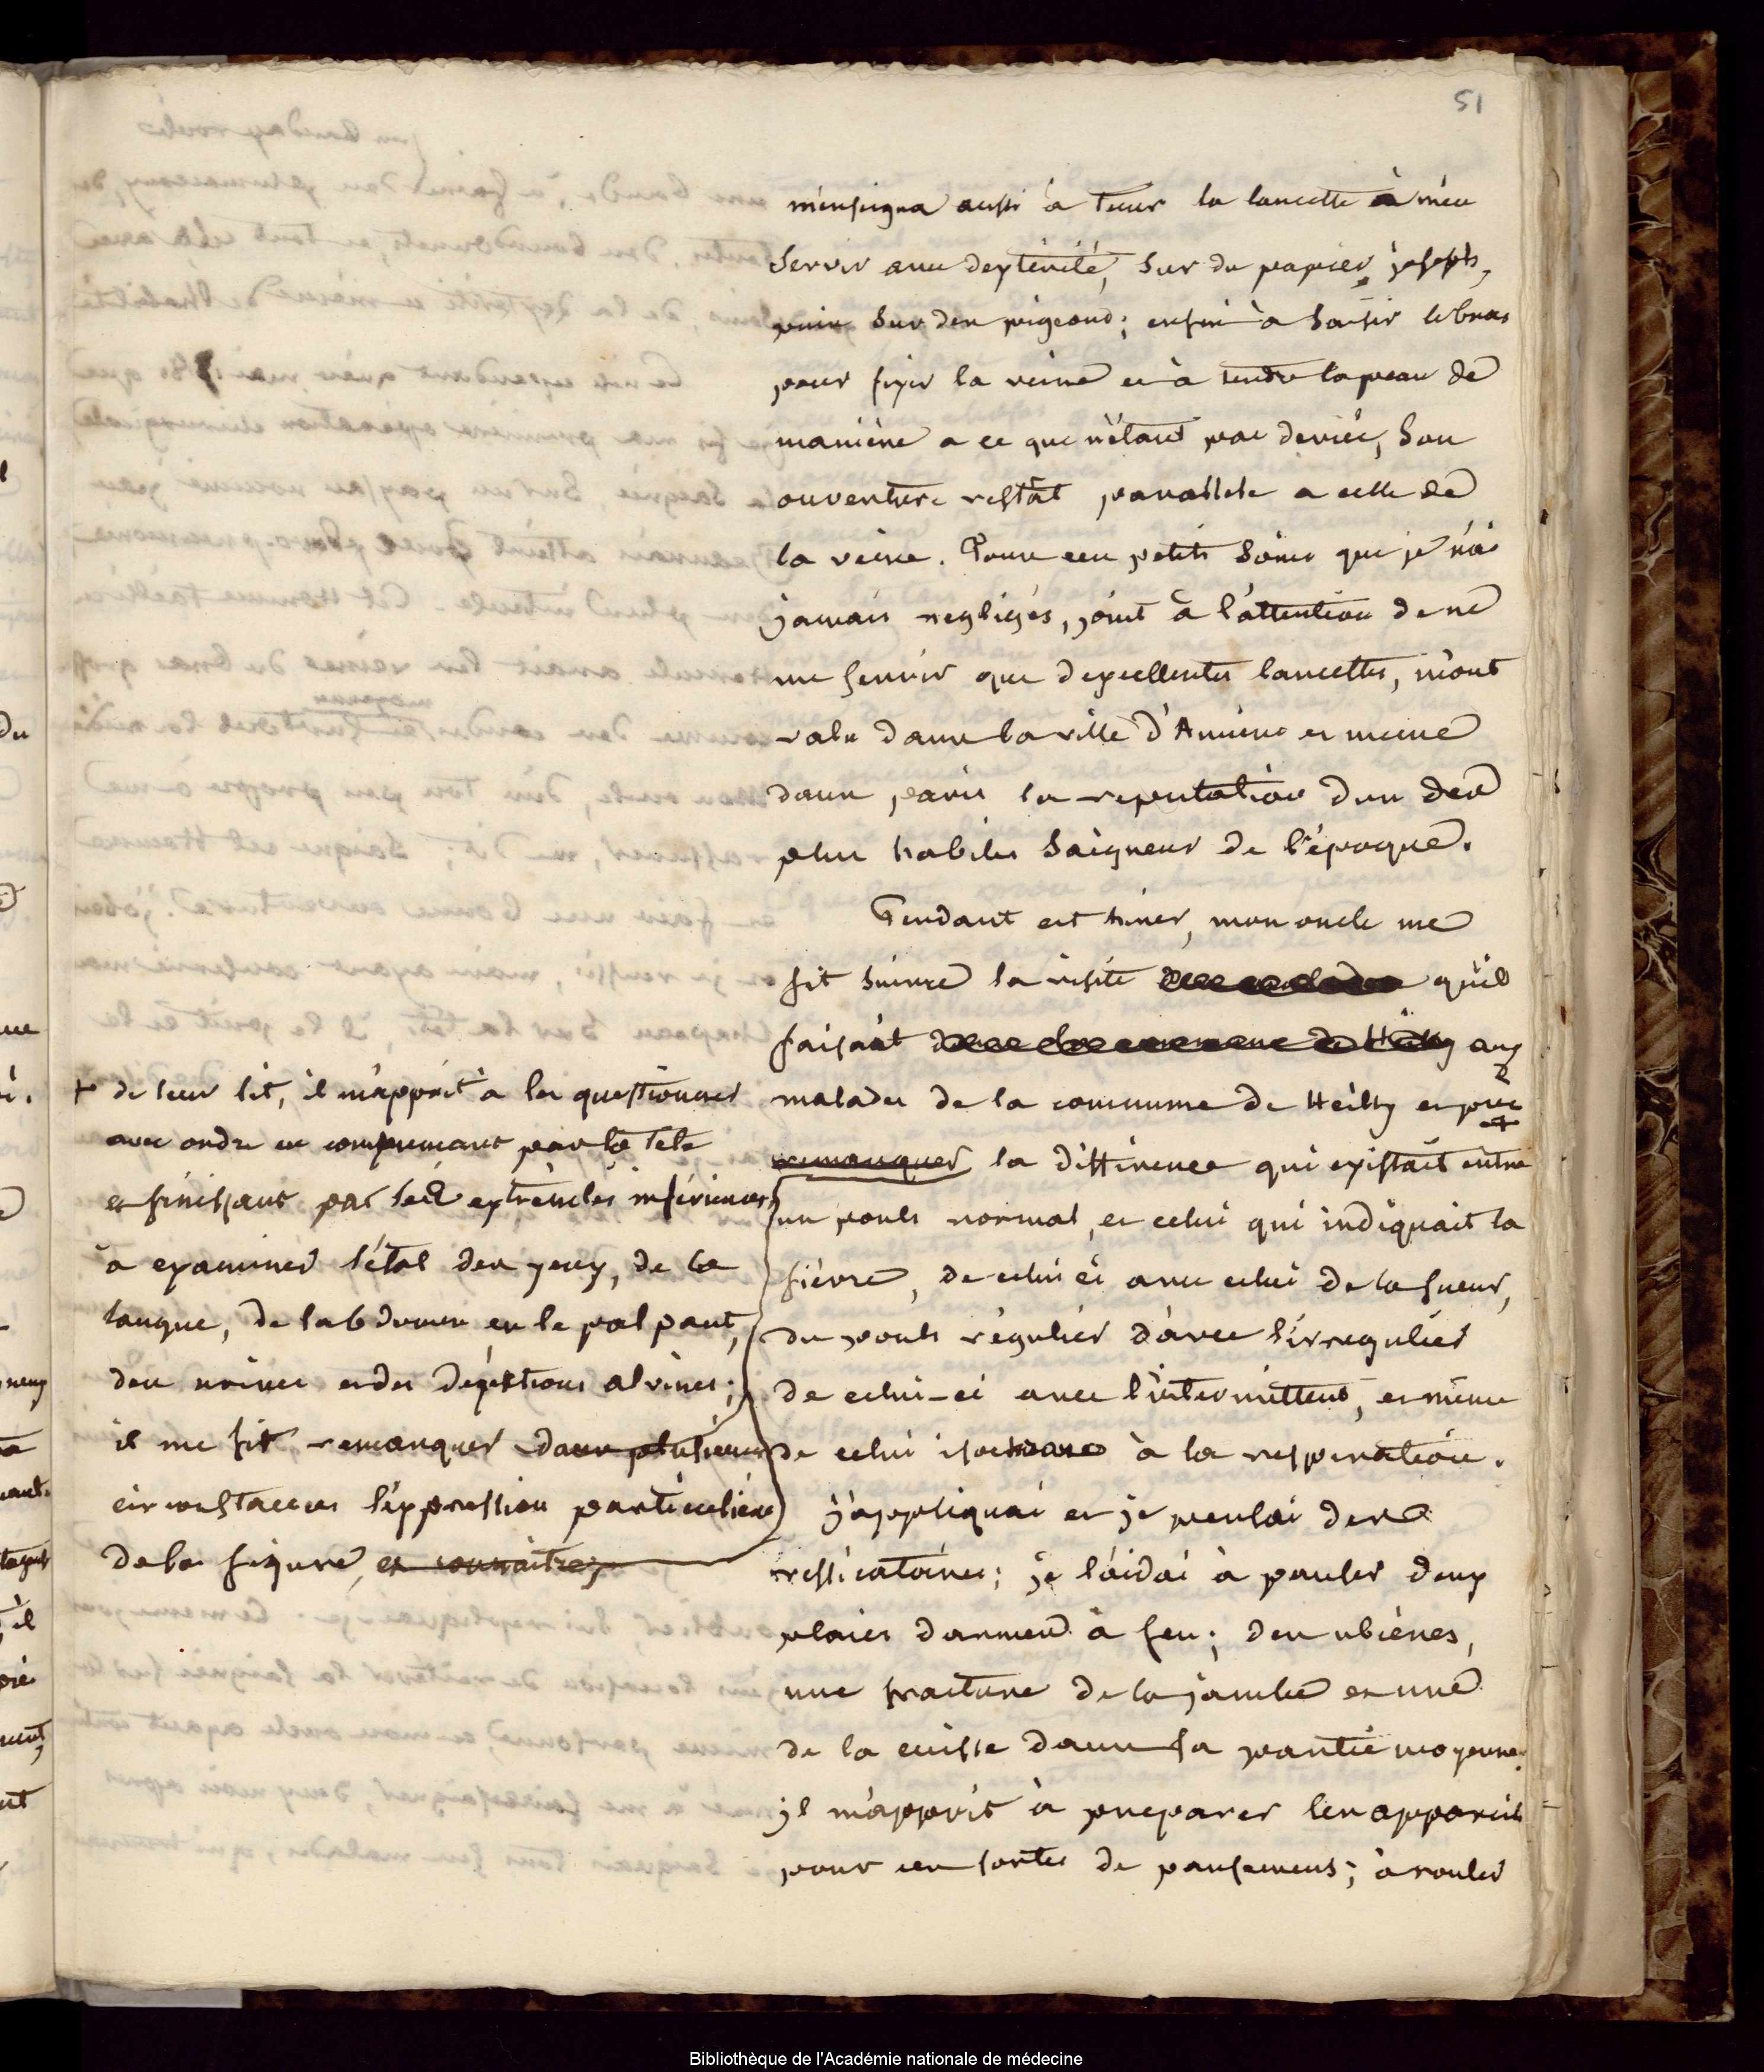 51
m'enseigna aussi à tenir la lancette à m'en
servir avec dexterité, sur du papier joseph,
puis sur des pigeons; enfin à saisir le bras
pour fixer la veine et à tendre la peau de
manière a ce que n'étant pas deviée, son
ouverture restât parallele a celle de
la veine. Tous ces petits soins que je n'ai
jamais negligés, joint à l'attention de ne
me servir que d'excellentes lancettes, m'ont
valu dans la ville d'Amiens et meme
dans paris la reputation d'un des
plus habiles saigneurs de l'époque.
Pendant cet hiver, mon oncle me
fit suivre la visite des malades qu'il
faisait dans la commune de Heilly aux
malades de la commune de Heilly et près +
remarquer la différence qui existait entre
un pouls normal, et celui qui indiquait la
fièvre, de celui ci avec celui de la sueur,
du pouls régulier d'avec l'irregulier
de celui-ci avec l'intermittent, et même
de celui isochrone à la respiration.
j'appliquai et je pensai des
vessicatoires; je l'aidai à panser deux
plaies d'armes à feu; des ulcères,
une fracture de la jambe et une
de la cuisse dans sa partie moyenne.
il m'apprit à preparer les appareils
pour ces sortes de pansemens; à rouler
+ de leur lit, il m'apprit à les questionner
avec ordre en commencant par la tete
et finissant par les extremités inférieures,
à examiner l'état des yeux, de la
langue, de l'abdomen en le palpant,
des urines et des dejections alvines;
il me fit remarquer dans plusieurs
circonstances l'expression particulière
de la figure, et connaitre